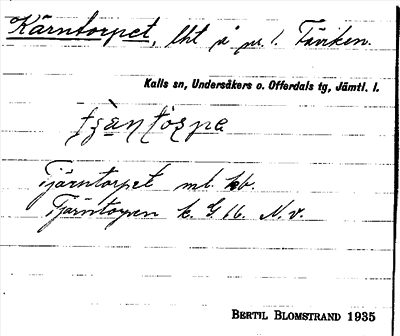 Kärntorpet, lht på nr. 1. Täviken.
Kalls sn, Undersåkers o. Offerdals tg, Jämtl. l.
Tjärntorpet ml. kb.
Tjärntorpen k. G 16. N. v.
BERTIL BLOMSTRAND 1935